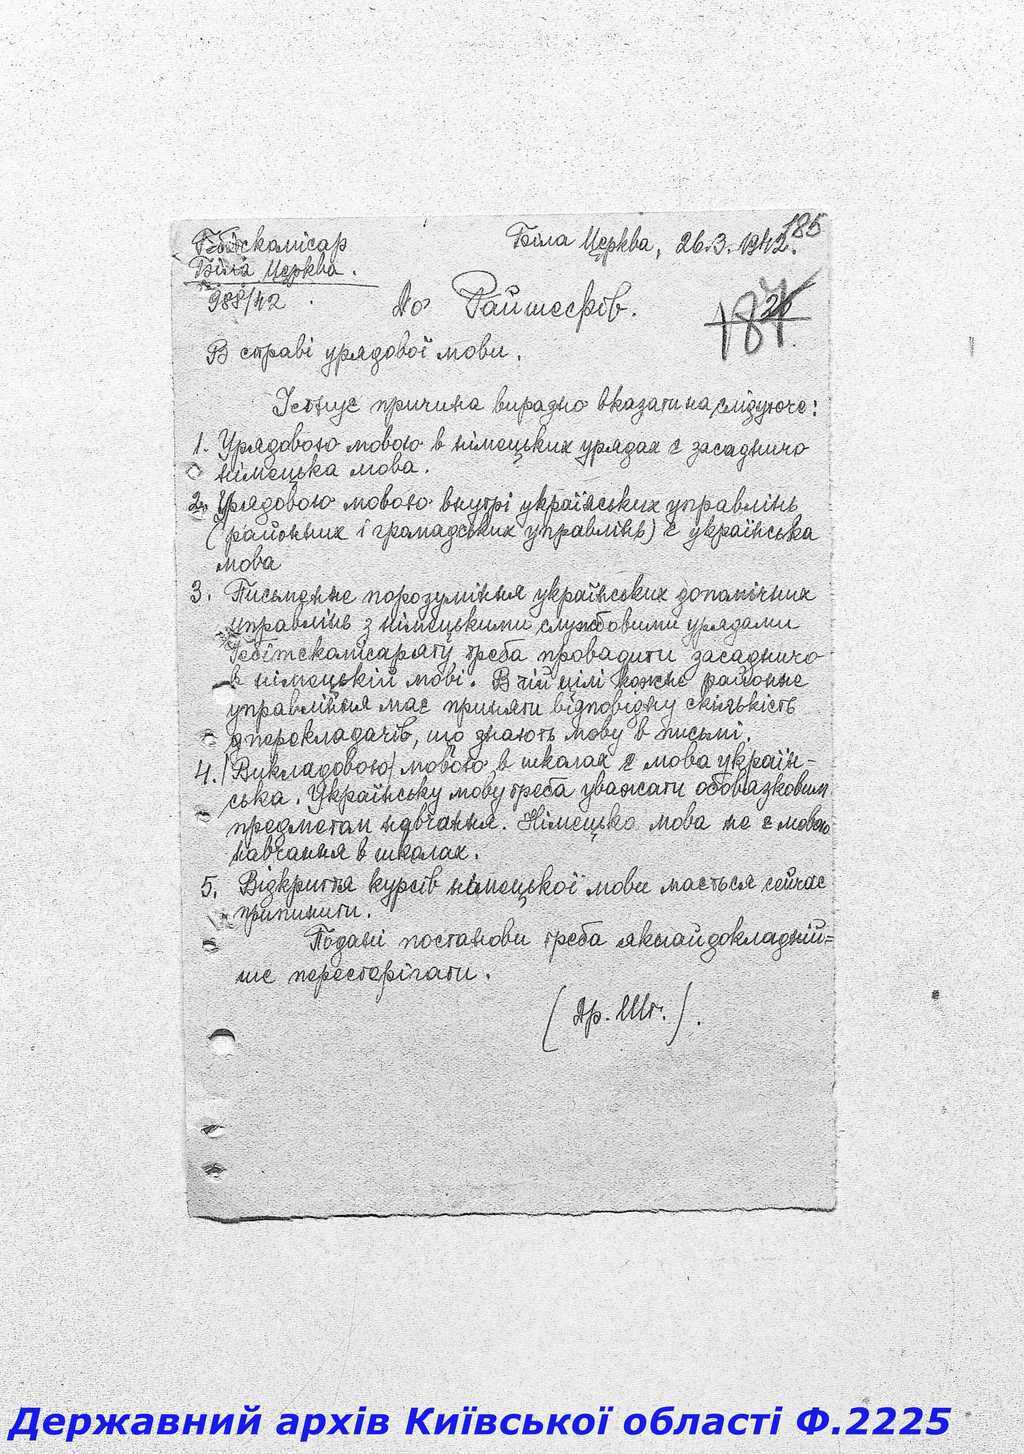 185
Гебітскомісар
Біла Церква, 26.3.1942.
Біла Церква.
988/42
До Райшефів.
187
26
В справі урядової мови.
Існує причина виразно вказати на слідуюче:
1. Урядовою мовою в німецьких урядах є засаднично
німецька мова.
2. Урядовою мовою внутрі українських управлінь
(районних і громадських управлінь) є українська
мова
3. Письменне порозуміння українських допомічних
управлінь з німецькими службовими урядами
Гебітскомісаріату треба провадити засаднично
в німецькій мові. В тій цілі кожне районне
управління має приняти відповідну скількість
перекладачів, що знають мову в письмі.
4. Викладовою мовою в школах є мова україн-
ська. Українську мову треба уважати обовязковим
предметам навчання. Німецько мова не є мовою
навчання в школах.
5. Відкриття курсів німецької мови мається сейчас
припинити.
Подані постанови треба якнайдокладній=
ше перестерігати.
(Др. Шт.).
Державний архів Київської області Ф.2225